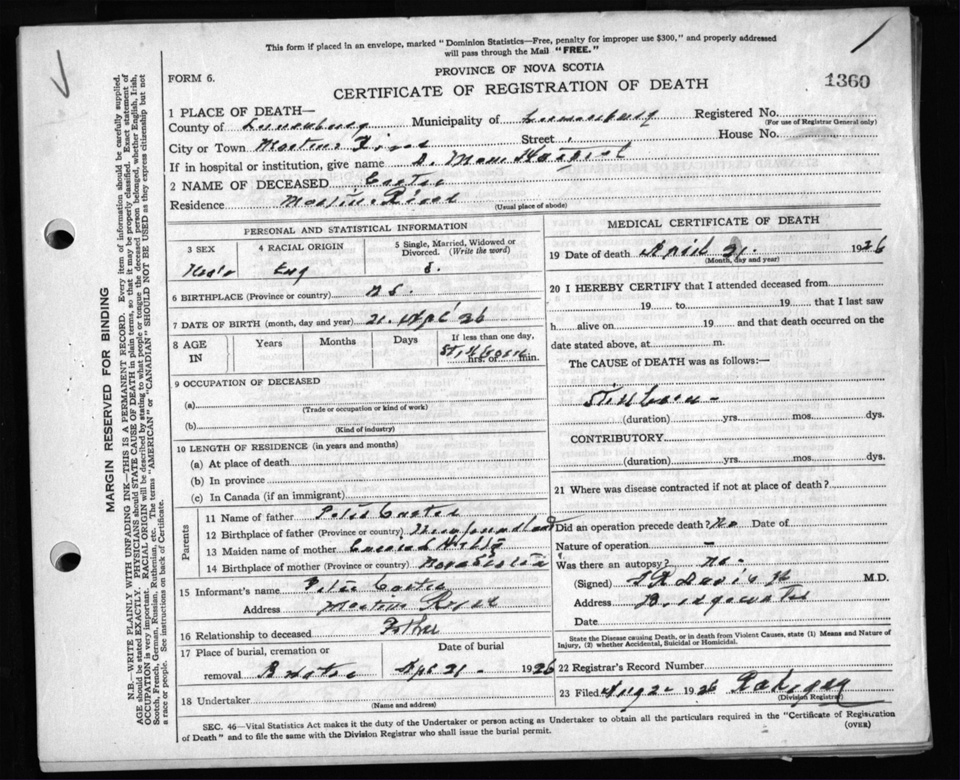 This form if placed in an envelope, marked "Dominion Statistics—Free, penalty for improper use $300," and properly addressed
will pass through the Mail "FREE."
PROVINCE OF NOVA SCOTIA
FORM 6.
CERTIFICATE OF REGISTRATION OF DEATH
1360
1 PLACE OF DEATH—
County of Lunenburg Municipality of Lunenburg Registered No.
(For use of Registrar General only)
City or Town Martins River Street House No.
If in hospital or institution, give name
2 NAME OF DECEASED Carter
Residence Martins River
(Usual place of abode)
PERSONAL AND STATISTICAL INFORMATION
3 SEX 4 RACIAL ORIGIN 5 Single, Married, Widowed or Divorced. (Write the word)
Eng S.
6 BIRTHPLACE (Province or country) N S.
7 DATE OF BIRTH (month, day and year) 21 Apl 26
8 AGE IN Years Months Days If less than one day,
Stillborn hrs. or min.
9 OCCUPATION OF DECEASED
(a)
(Trade or occupation or kind of work)
(b)
(Kind of industry)
10 LENGTH OF RESIDENCE (in years and months)
(a) At place of death
(b) In province
(c) In Canada (if an immigrant)
Parents
11 Name of father Peter Carter
12 Birthplace of father (Province or country) Newfoundland
13 Maiden name of mother
14 Birthplace of mother (Province or country) Nova Scotia
15 Informant's name Peter Carter
Address Martins River
16 Relationship to deceased Father
17 Place of burial, cremation or Date of burial
removal Apl 21 - 1926
18 Undertaker
(Name and address)
MEDICAL CERTIFICATE OF DEATH
19 Date of death April 21. 1926
(Month, day and year)
20 I HEREBY CERTIFY that I attended deceased from
19 to 19 that I last saw
h alive on 19 and that death occurred on the
date stated above, at m.
The CAUSE of DEATH was as follows:—
Stillborn -
(duration) yrs. mos. dys.
CONTRIBUTORY
(duration) yrs. mos. dys.
21 Where was disease contracted if not at place of death?
Did an operation precede death? No Date of
Nature of operation -
Was there an autopsy? No.
(Signed) Davis M.D.
Address Bridgewater
Date
State the Disease causing Death, or in death from Violent Causes, state (1) Means and Nature of
Injury, (2) whether Accidental, Suicidal or Homicidal.
22 Registrar's Record Number
23 Filed 1926
(Division Registrar)
SEC. 46—Vital Statistics Act makes it the duty of the Undertaker or person acting as Undertaker to obtain all the particulars required in the "Certificate of Registration
of Death" and to file the same with the Division Registrar who shall issue the burial permit.
(OVER)
MARGIN RESERVED FOR BINDING
N.B.—WRITE PLAINLY WITH UNFADING INK—THIS IS A PERMANENT RECORD. Every item of information should be carefully supplied.
AGE should be stated EXACTLY. PHYSICIANS should STATE CAUSE OF DEATH in plain terms, so that it may be properly classified. Exact statement of
OCCUPATION is very important. RACIAL ORIGIN will be described by stating to what people or tongue the deceased person belonged, whether English, Irish,
Scotch, French, German, Russian, Ruthenian, etc. The terms "AMERICAN" or "CANADIAN" SHOULD NOT BE USED as they express citizenship but not
a race or people. See instructions on back of Certificate.